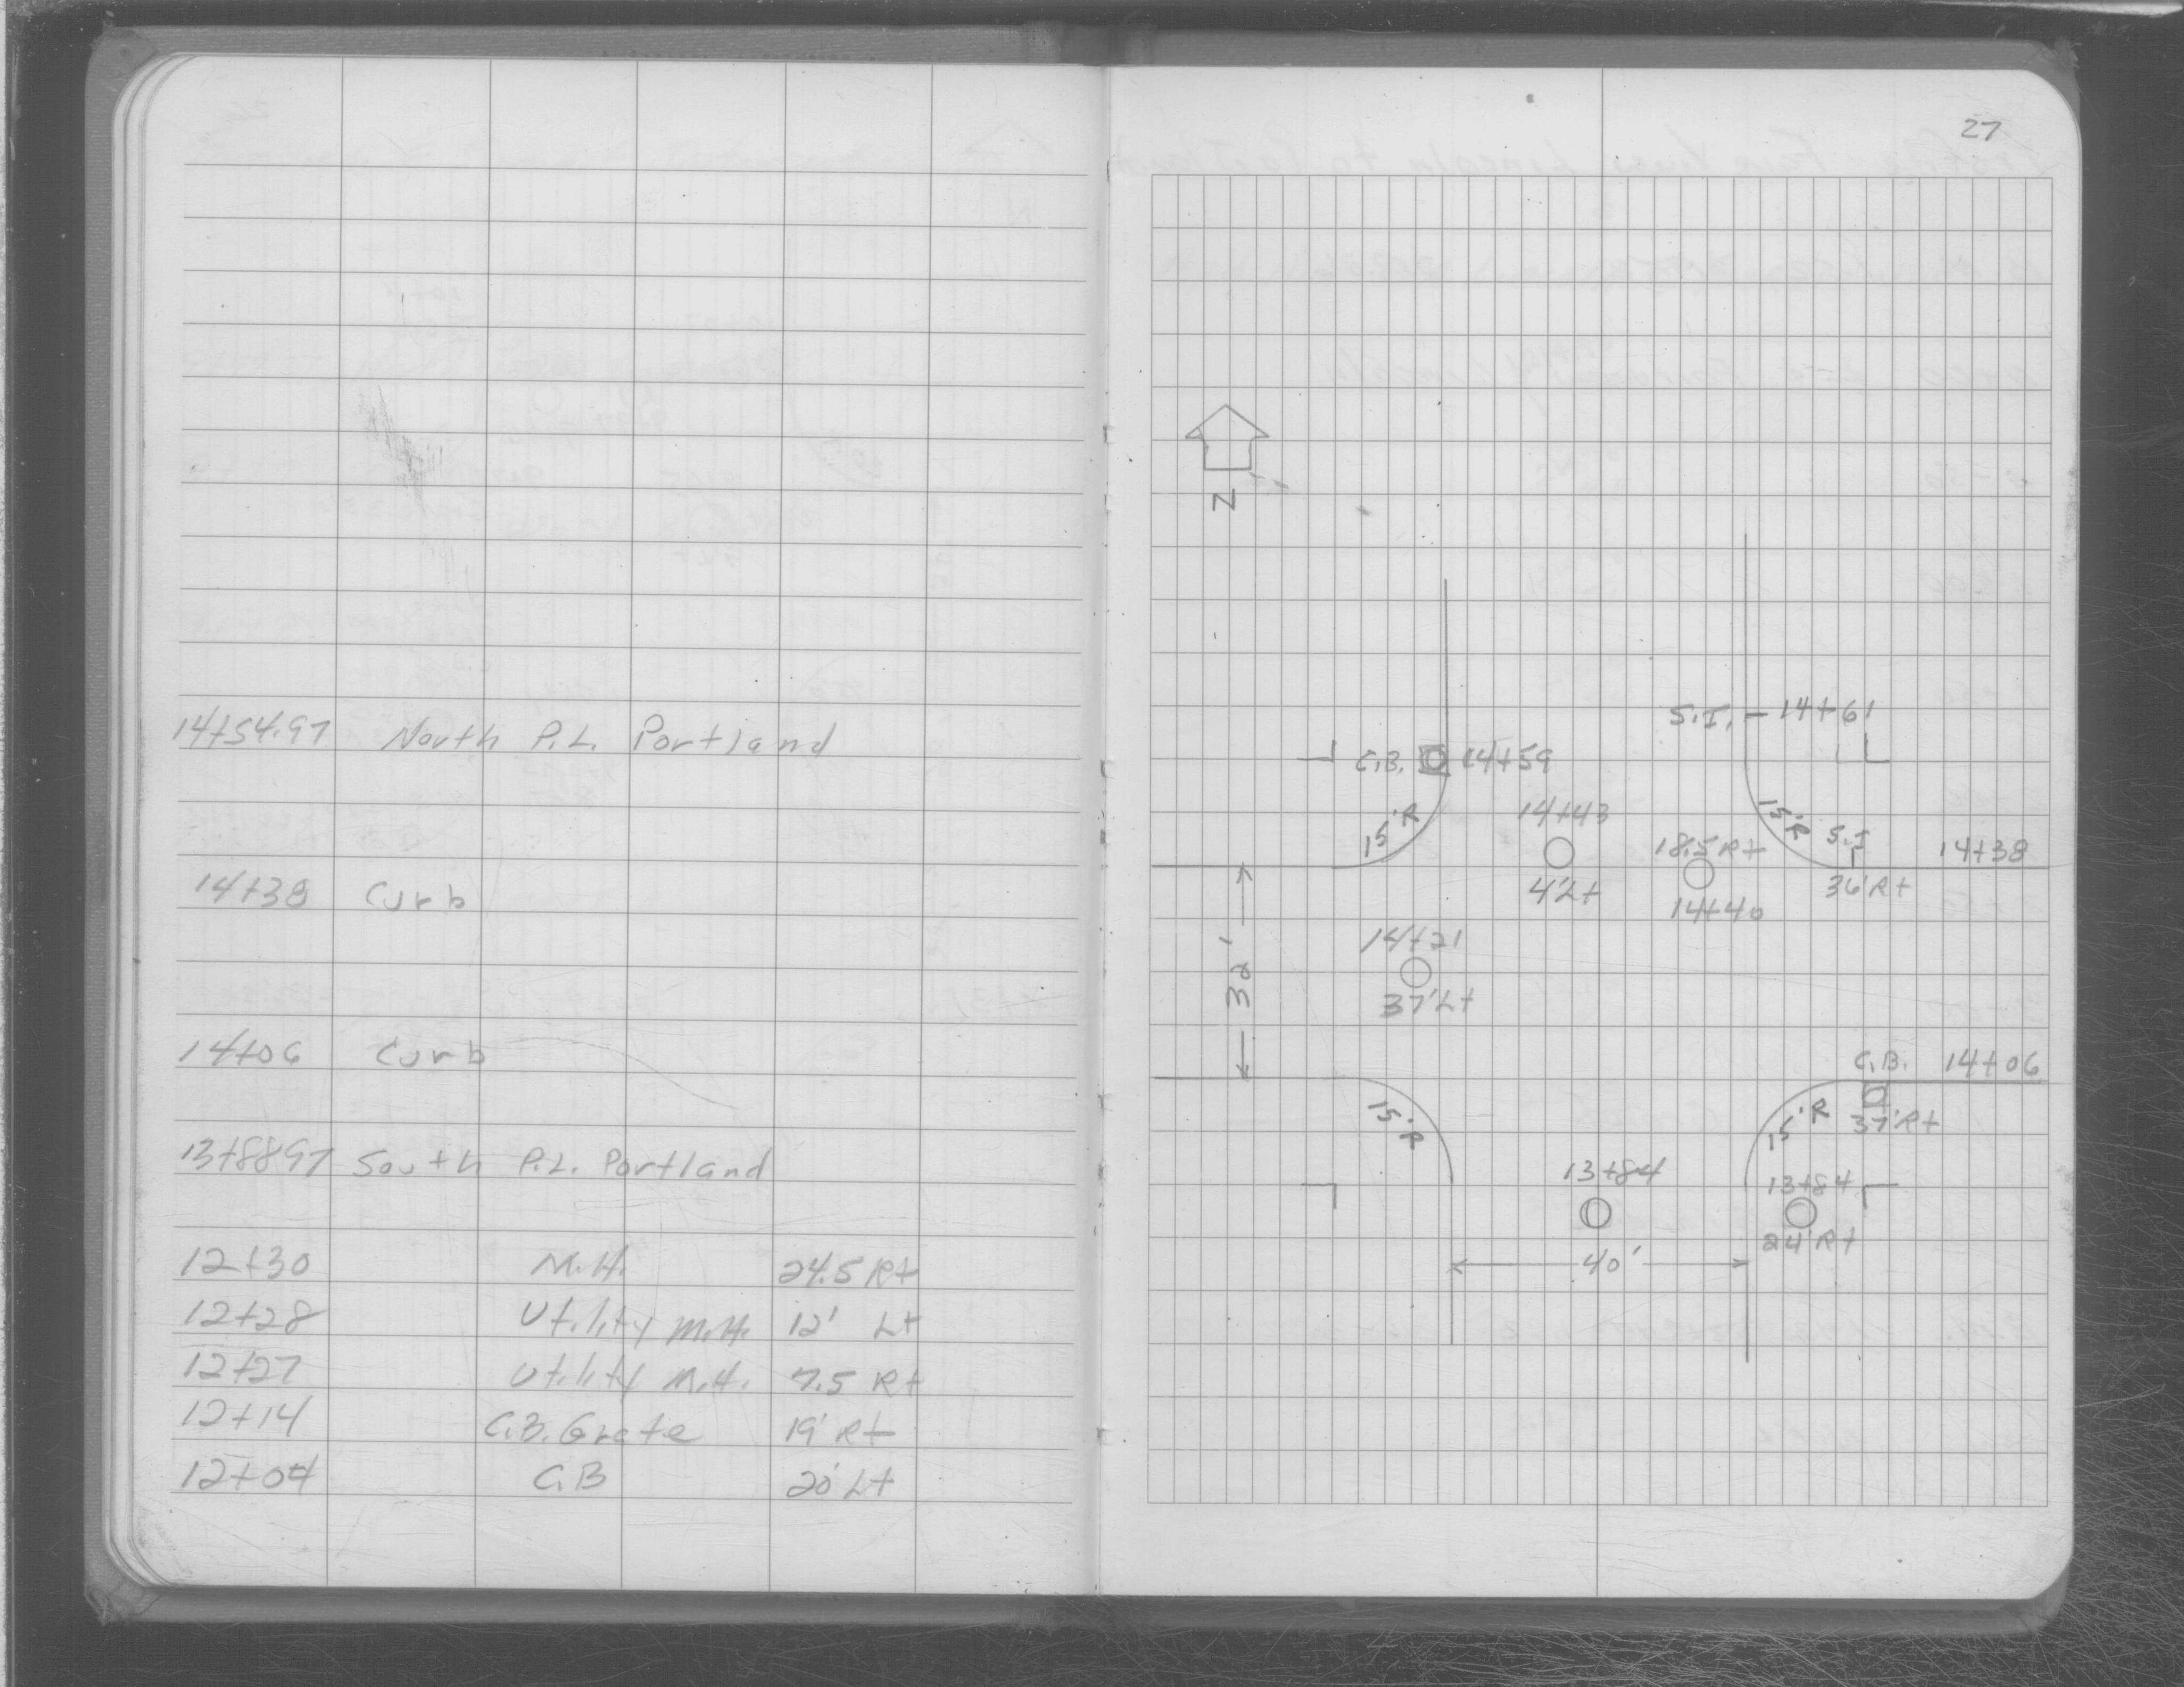 14+54.97 North P.L. Portland
14+38 Curb
14+06 Curb
13+8897 South P.L. Portland
12+30 M.H. 24.5 Rt
12+28 Utility M.H. 12' Lt
12+27 Utility M.H. 7.5 Rt
12+14 C.B. Grate 19' Rt
12+04 C.B 20' Lt
27
N
S.I. 14+61
C.B. 14+59
15'R
14+43
4'Lt
15'R
S.I
18.5 Rt
14+40
36'Rt
14+38
14+21
37'Lt
32'
C.B. 14+06
37'Rt
15'R
15'R
13+84
13+84
24'Rt
40'